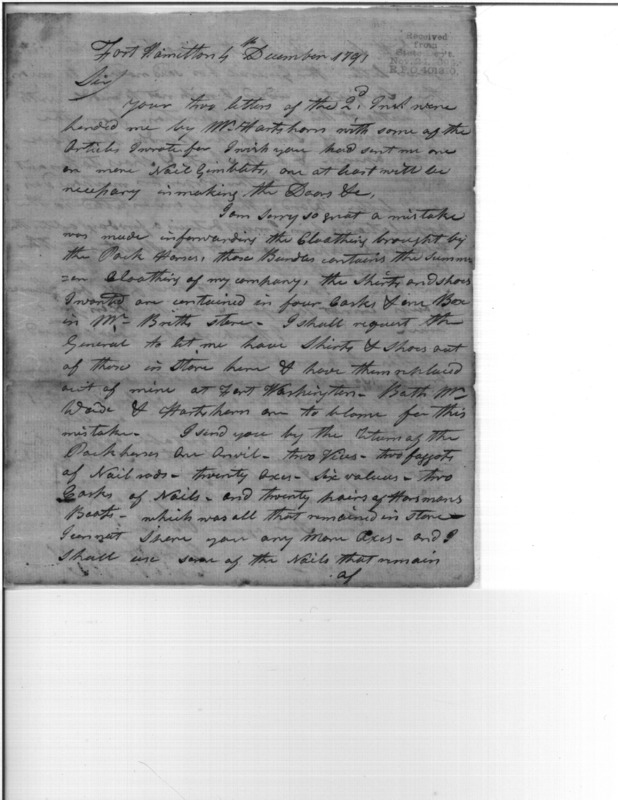 Received
from
R.P.O. 401950.
Fort Hamilton 4th December 1791
Sir/
Your two letters of the 2d. Inst. were
handed me by Mr. Hartshorn with some of the
Articles I wrote for I wish you had sent me one
or more Nail Gimblets, one at least will be
necessary in making the Doors &c,
I am sorry so great a mistake
was made in forwarding the Cloathing brought by
the Pack Horses, those Bundles contains the Summ
=er Cloathing of my company, the Shirts and shoes
I wanted are contained in four Casks & one Box
in Mr. Britts store - I shall request the
General to let me have Shirts & Shoes out
of those in Store here & have them replaced
out of mine at Fort Washington - Both Mr
Wade & Hartshorn are to blame for this
mistake - I send you by the return of the
Packhorses One Anvil - two Vices - two faggots
of Nail rods - twenty axes - Six valises - two
Casks of Nails - and twenty pairs of Horsmans
Boots - which was all that remained in store -
I cannot spare you any more Axes - and I
shall use some of the Nails that remain
of